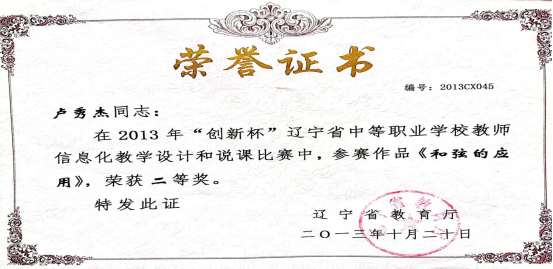 荣誉证书
编号：2013CX045
卢秀杰同志：
在2013年“创新杯”辽宁省中等职业学校教师
信息化教学设计和说课比赛中，参赛作品《和弦的应
用》，荣获 二等奖。
特发此证
辽宁省教育厅
二〇一三年十月二十日